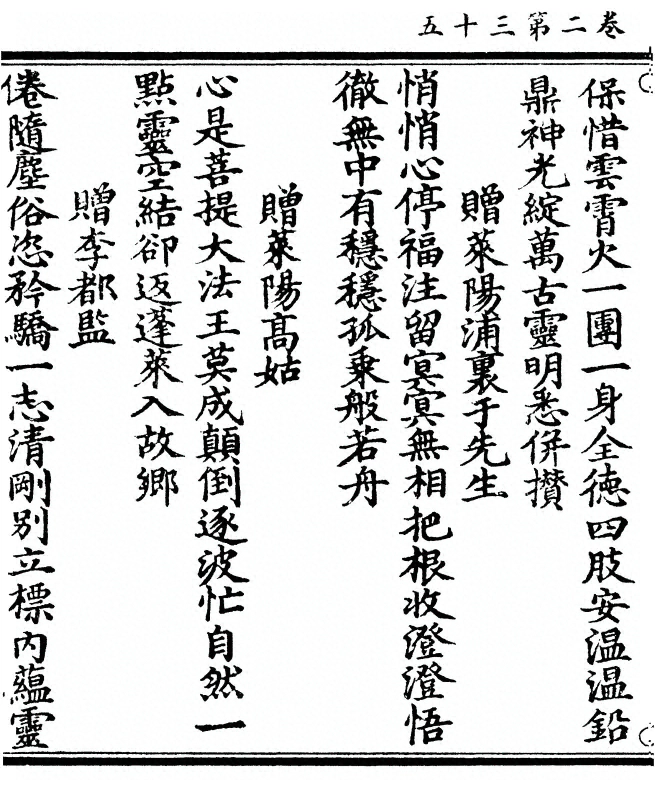 卷二第三十五
保惜雲霄火一團一身全德四肢安溫溫鉛
鼎神光綻萬古靈明悉併攢
贈萊陽浦裏于先生
悄悄心停福注留冥冥無相把根收澄澄悟
徹無中有穩穩孤乘般若舟
贈萊陽高姑
心是菩提大法王莫成顛倒逐波忙自然一
點靈空結卻返蓬萊入故鄉
贈李都監
倦隨塵俗恣矜驕一志清剛別立標內蘊靈